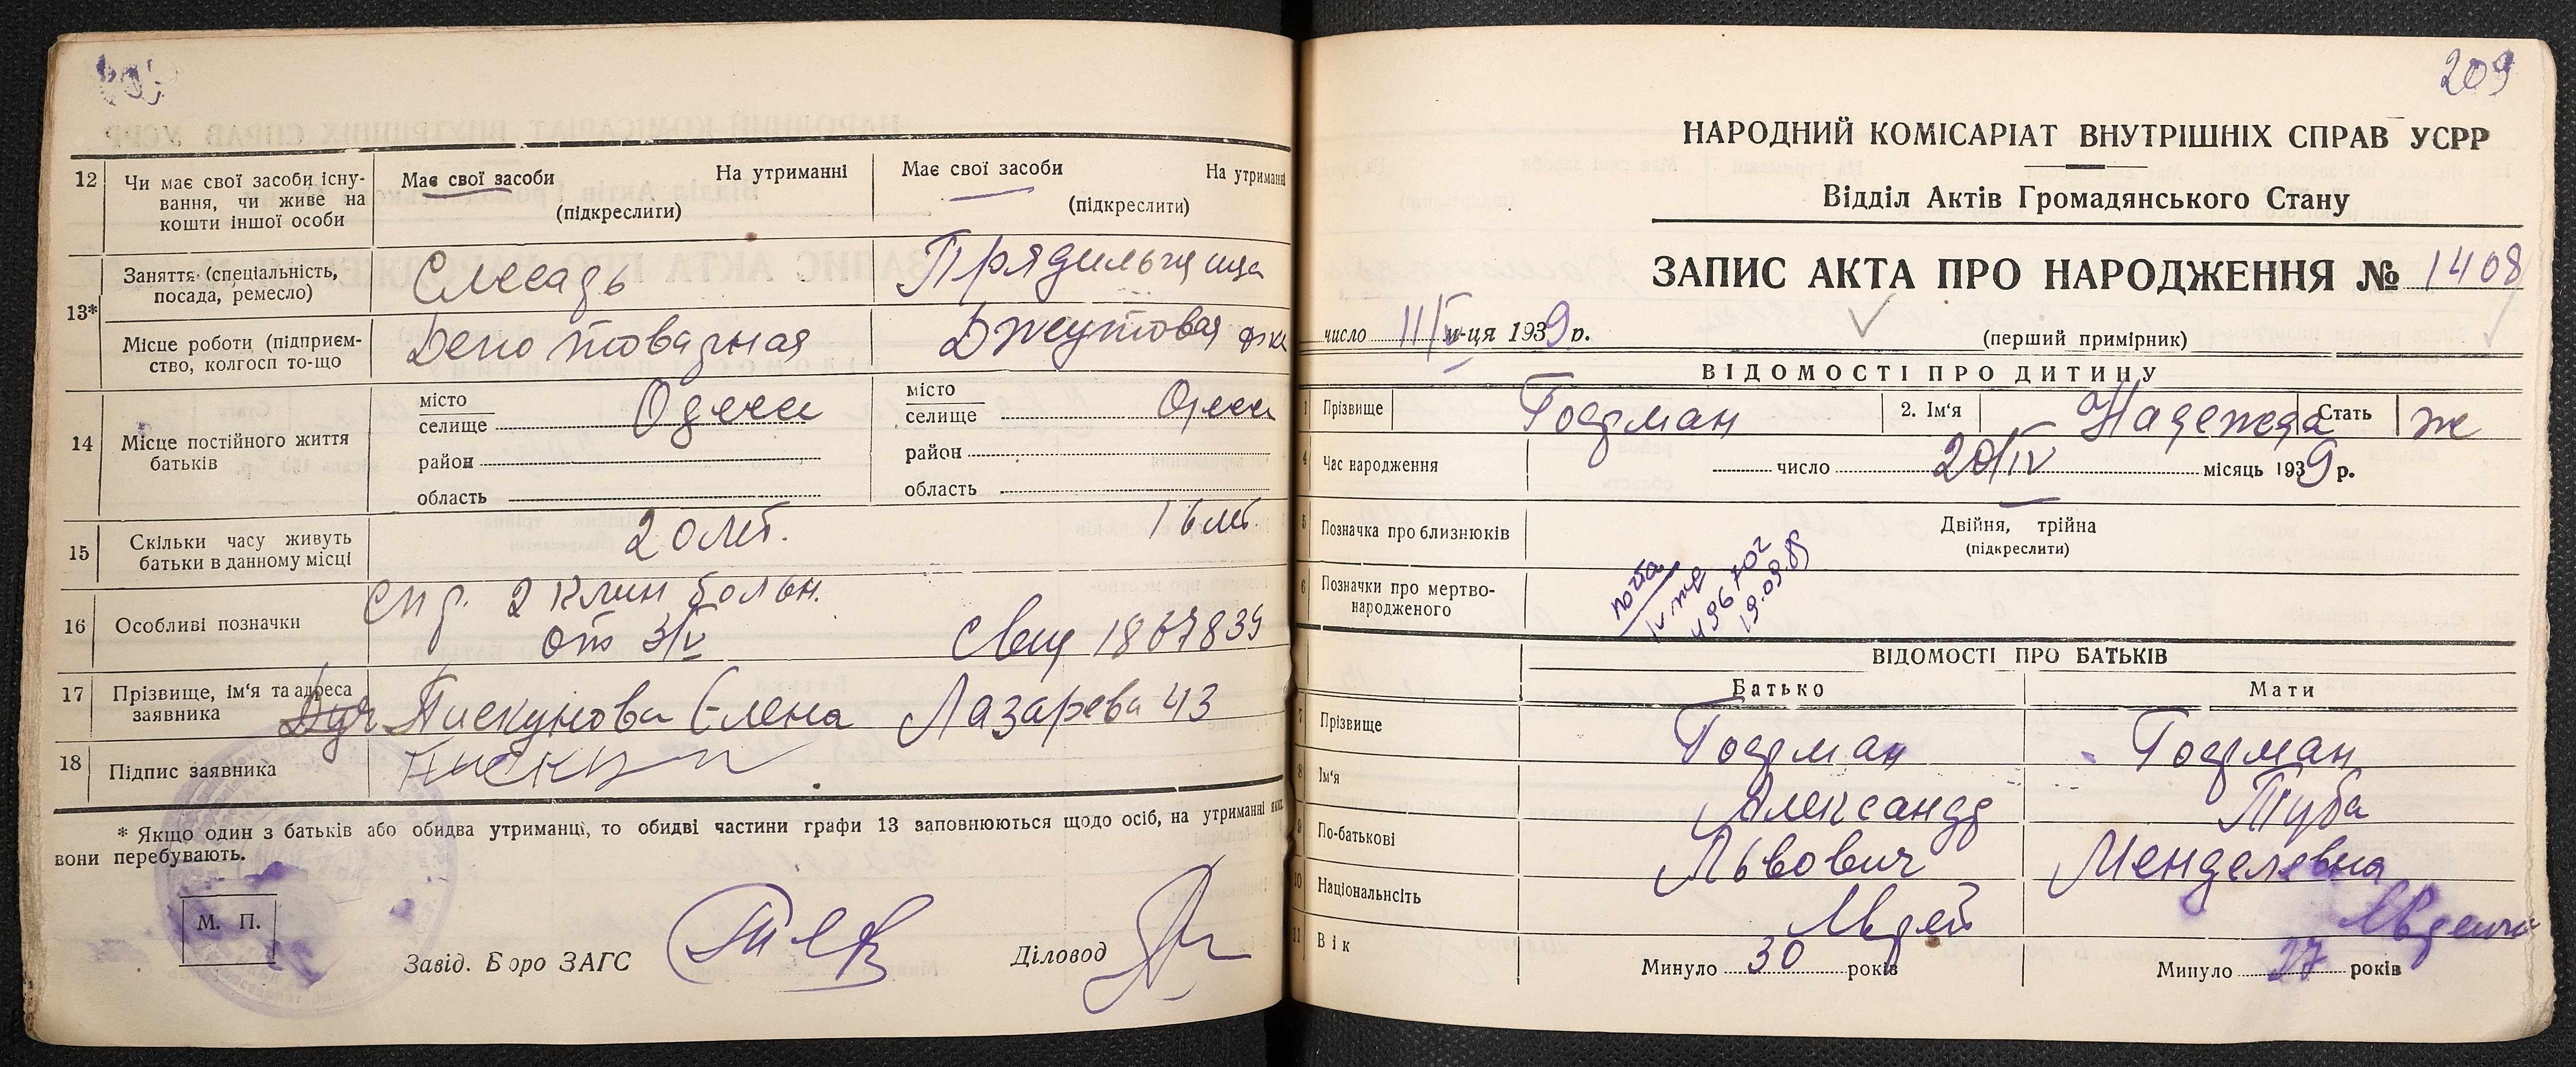 12 Чи має свої засоби існу-
вання, чи живе на
кошти іншої особи
Має свої засоби На утриманні
(підкреслити)
Має свої засоби На утриманні
(підкреслити)
13*
Заняття (спеціальність,
посада, ремесло)
Слесарь
Прядильщица
Місце роботи (підприєм-
ство, колгосп то-що
Депо товарная
Джутовая ф-ка
14 Місце постійного життя
батьків
місто
селище Одесса
район
область
місто
селище Одесса
район
область
15 Скільки часу живуть
батьки в данному місці
20 лет.
16 лет.
16 Особливі позначки
Спр. 2 клин больн.
от 3/V
17 Прізвище, ім'я та адреса
заявника
Пискунова Елена Лазарева 43
18 Підпис заявника
* Якщо один з батьків або обидва утриманці, то обидві частини графи 13 заповнюються щодо осіб, на утриманні яких
вони перебувають.
М. П.
Завід. Бюро ЗАГС
Діловод
209
НАРОДНИЙ КОМІСАРІАТ ВНУТРІШНІХ СПРАВ УСРР
Відділ Актів Громадянського Стану
ЗАПИС АКТА ПРО НАРОДЖЕННЯ № 1408
число 11/V м-ця 1939 р.
(перший примірник)
ВІДОМОСТІ ПРО ДИТИНУ
1 Прізвище Гофман 2. Ім'я Надежда Стать ж
4 Час народження число 20/IV місяць 1939 р.
5 Позначка про близнюків
Двійня, трійна
(підкреслити)
6 Позначки про мертво-
народженого
19.09.89
ВІДОМОСТІ ПРО БАТЬКІВ
Батько Мати
7 Прізвище Гофман Гофман
8 Ім'я Александр Туба
9 По-батькові Львович Менделевна
10 Національність Еврей Еврейка
11 Вік Минуло 30 років Минуло 27 років